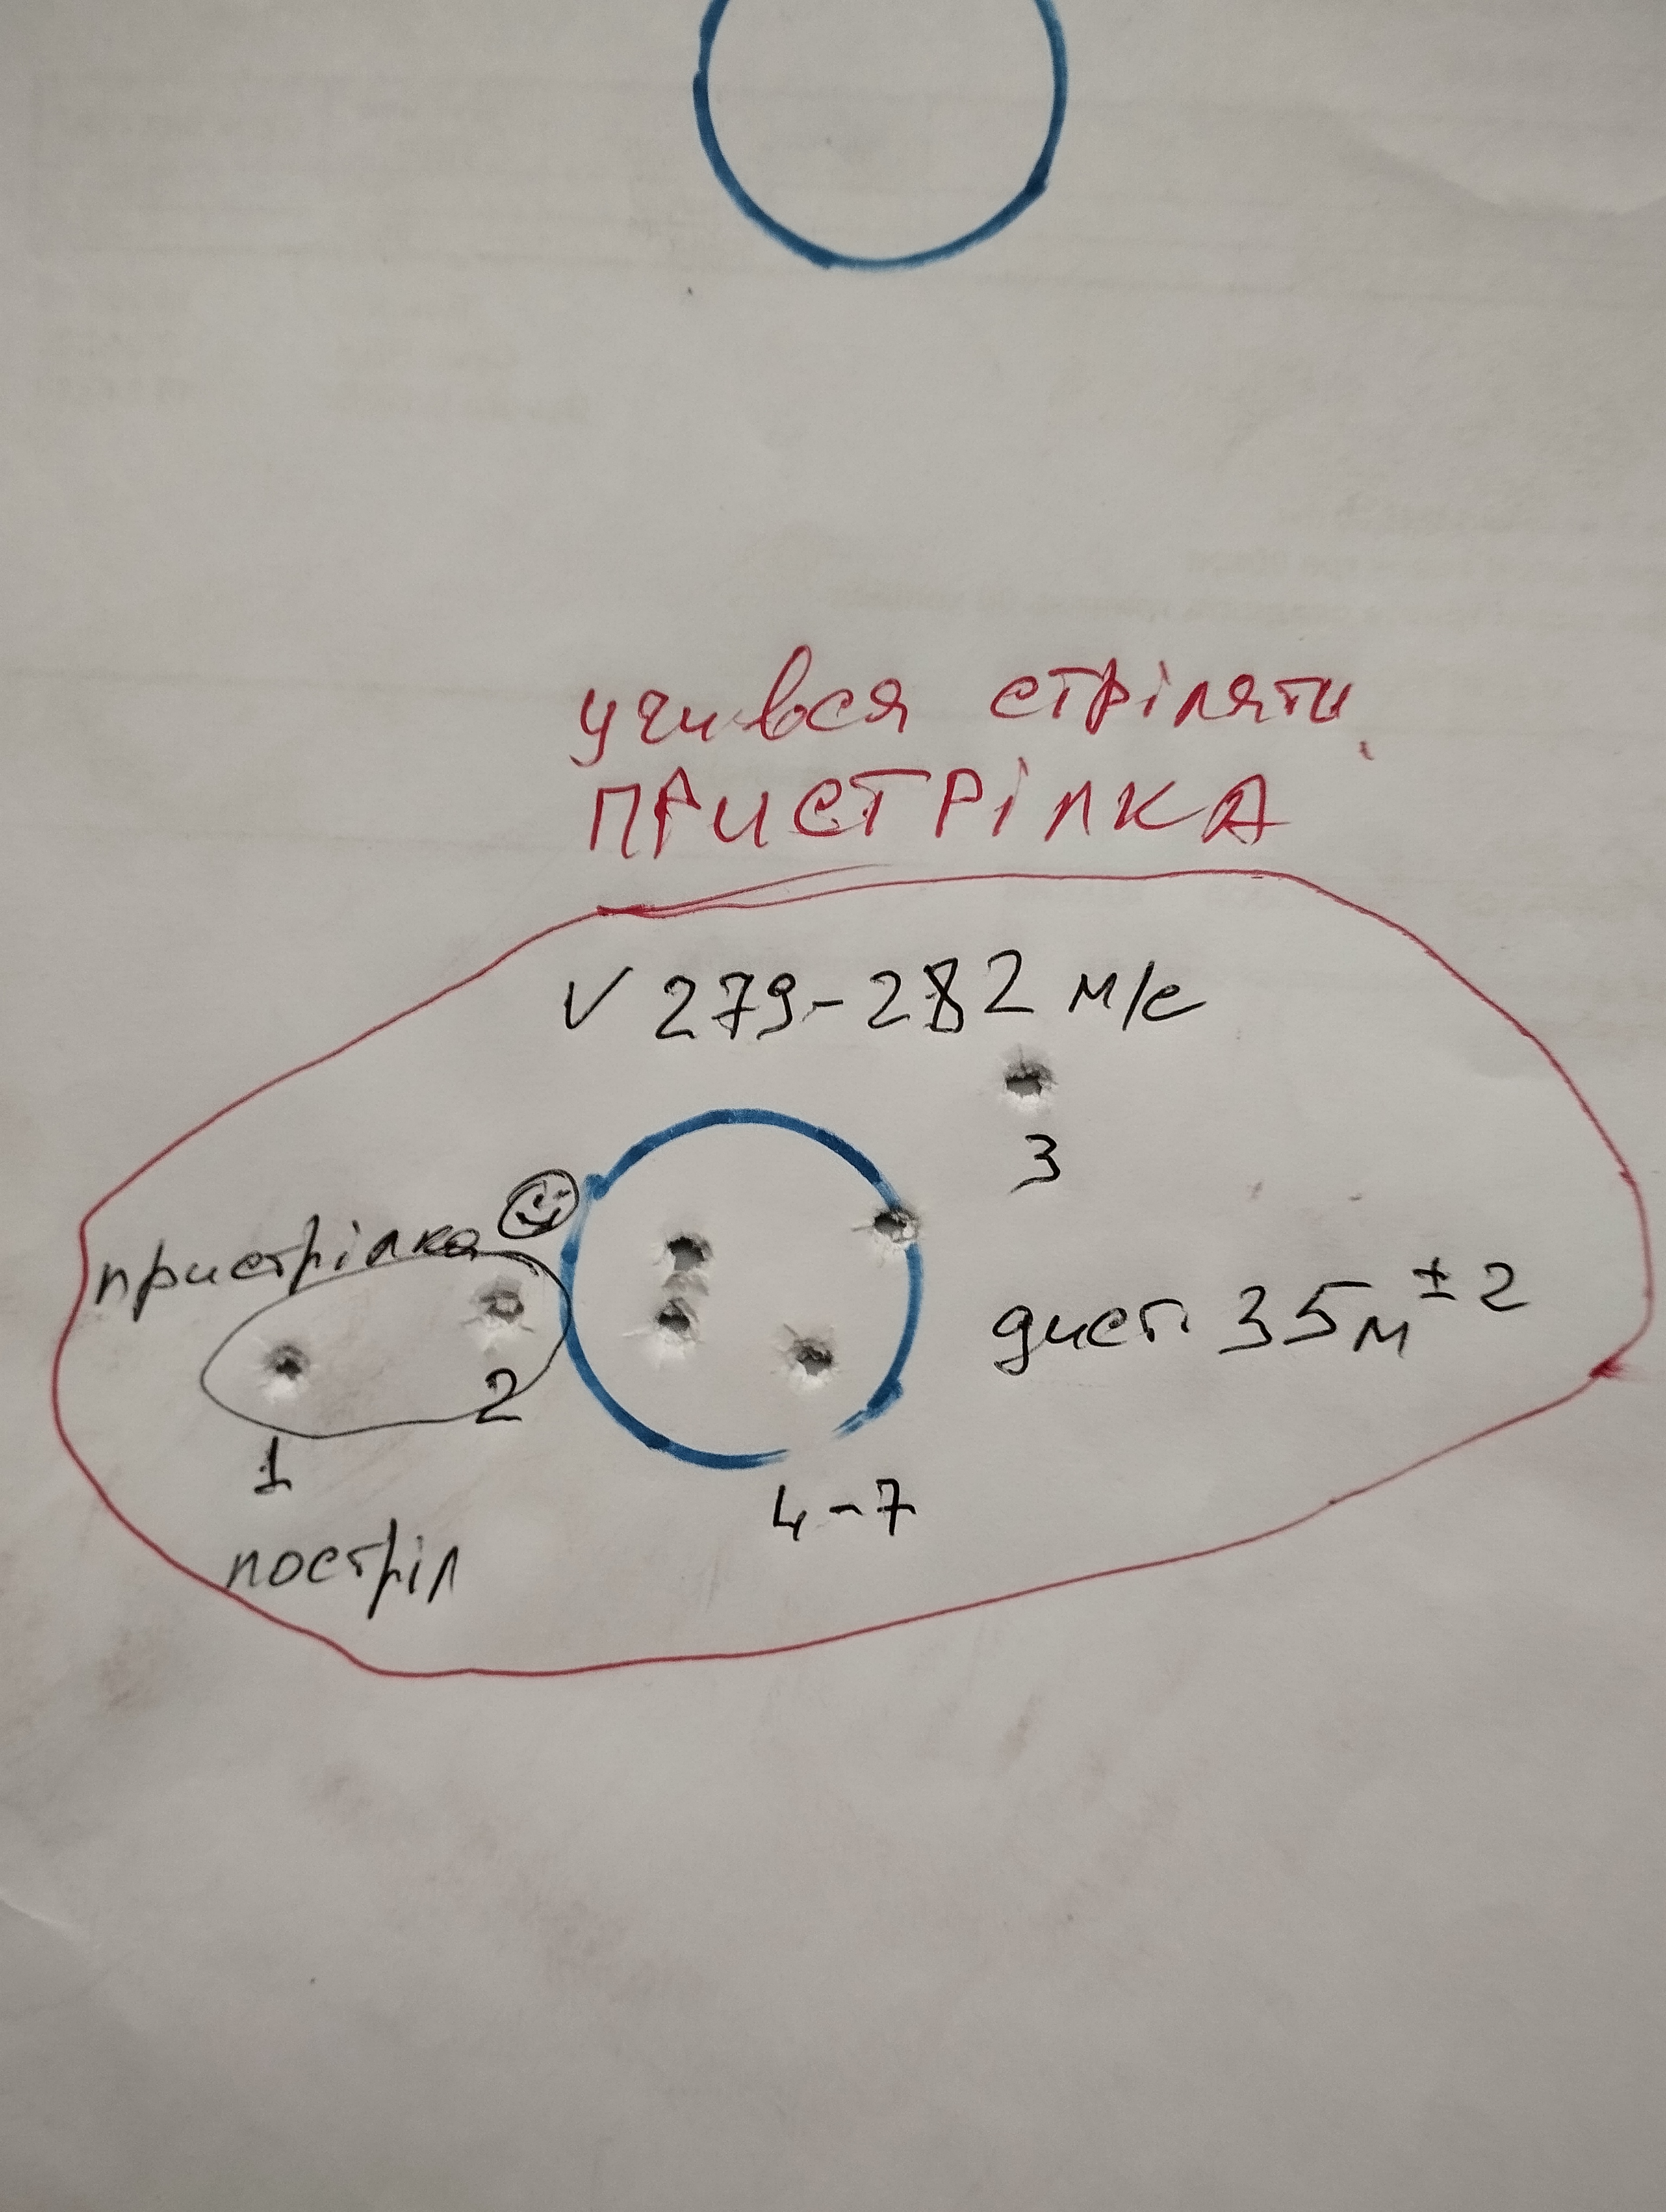 учився стріляти,
ПРИСТРІЛКА
V 279-282 м/с
3
пристрілка
дист. 35м ± 2
2
1
4-7
постріл